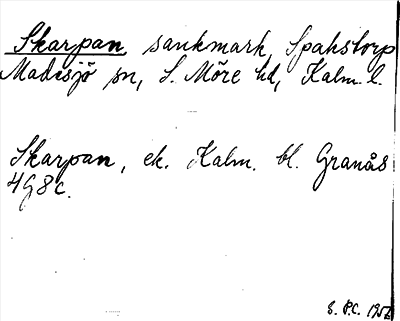 Skarpan sankmark, Spahstorp
Madesjö sn, S. Möre hd, Kalm. l.
Skarpan, ek. Kalm. bl. Granås
4G8c.
P.C. 195